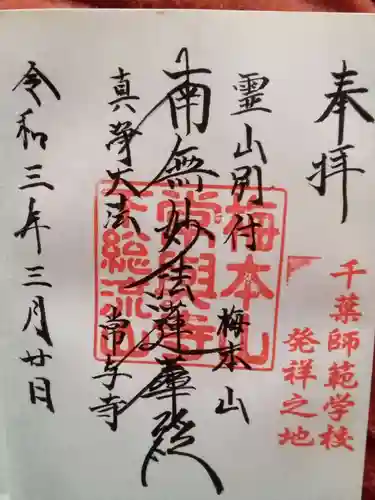 奉拝
千葉師範学校
発祥之地
霊山別付
梅本山
南無妙法蓮華経
真浄大法
常与寺
令和三年三月廿日
梅本山
常與寺
下総流山